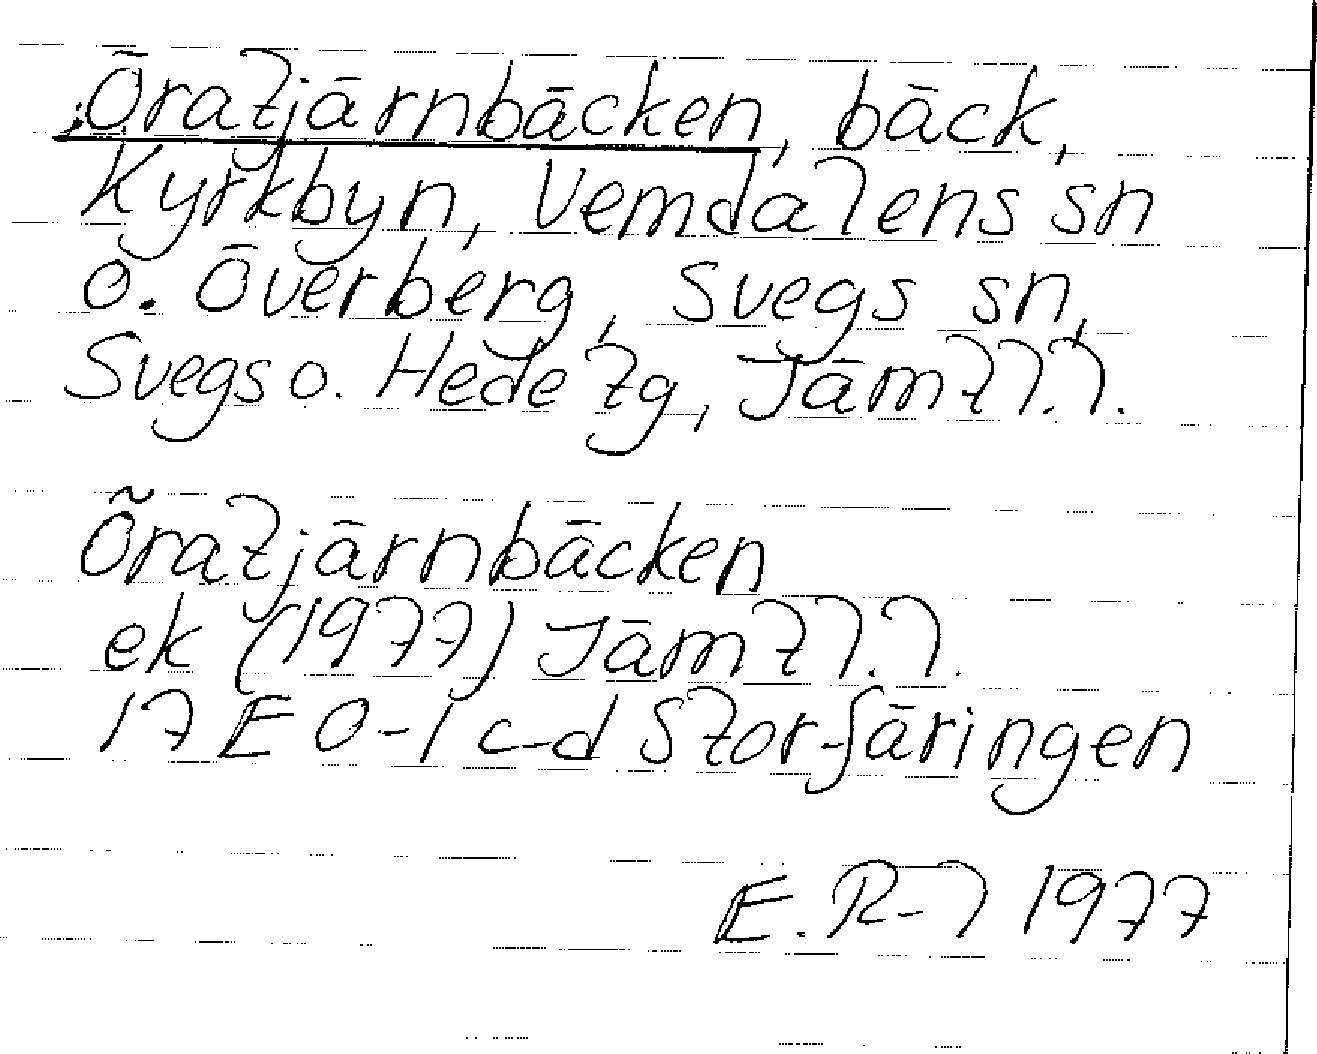 Öratjärnbäcken, bäck,
Kyrkbyn, Vemdalens sn
o. Överberg, Svegs sn,
Svegs o. Hede tg, Jämtl.l.
Öratjärnbäcken
ek (1977) Jämtl.l.
17 E 0-1 c-d Storfäringen
E. R-l 1977